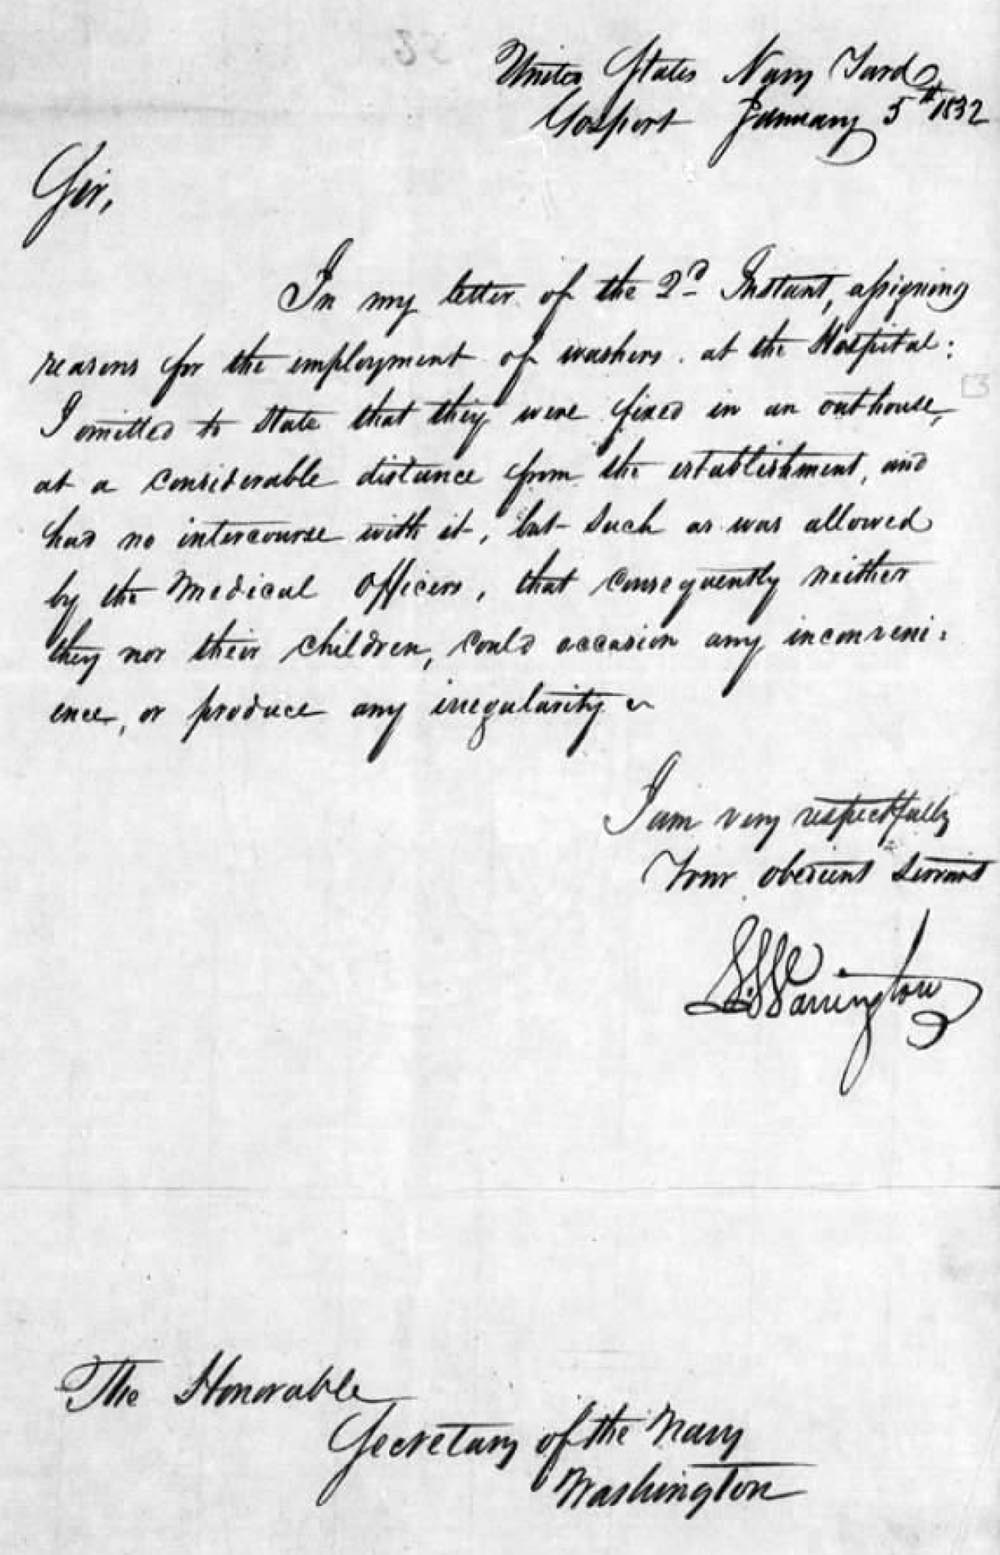 United States Navy Yard
Gosport January 5th 1832
Sir,
In my letter of the 2d Instant, assigning
reasons for the employment of washers. at the Hospital:
I omitted to state that they were fixed in an outhouse,
at a considerable distance from the establishment, and
had no intercourse with it, but such as was allowed
by the Medical Officers, that consequently neither
they nor their children, could occasion any inconveni:
ence, or produce any irregularity
I am very respectfully
Your obedient servant
L. Warrington
The Honorable
Secretary of the Navy
Washington